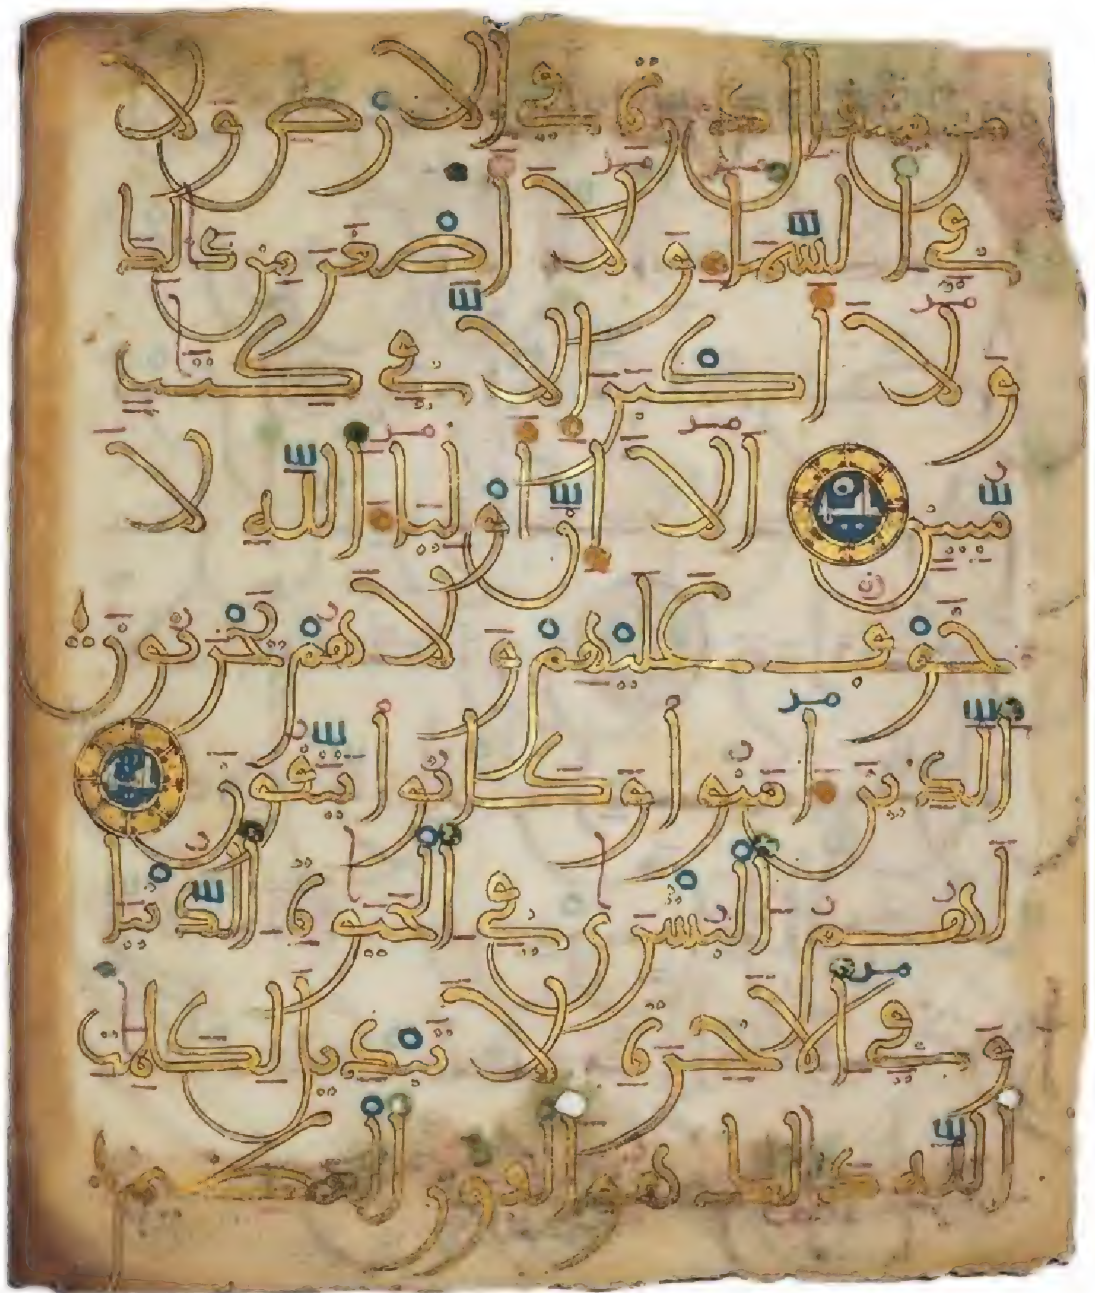 مِن مِّثْقَالِ ذَرَّةٍ فِي الْأَرْضِ وَلَا
فِي السَّمَاءِ وَلَا أَصْغَرَ مِن ذَٰلِكَ
وَلَا أَكْبَرَ إِلَّا فِي كِتَٰبٍ
مُّبِينٍ أَلَا إِنَّ أَوْلِيَاءَ اللَّهِ لَا
خَوْفٌ عَلَيْهِمْ وَلَا هُمْ يَحْزَنُونَ
الَّذِينَ ءَامَنُوا وَكَانُوا يَتَّقُونَ
لَهُمُ الْبُشْرَىٰ فِي الْحَيَوٰةِ الدُّنْيَا
وَفِي الْآخِرَةِ لَا تَبْدِيلَ لِكَلِمَٰتِ
اللَّهِ ذَٰلِكَ هُوَ الْفَوْزُ الْعَظِيمُ